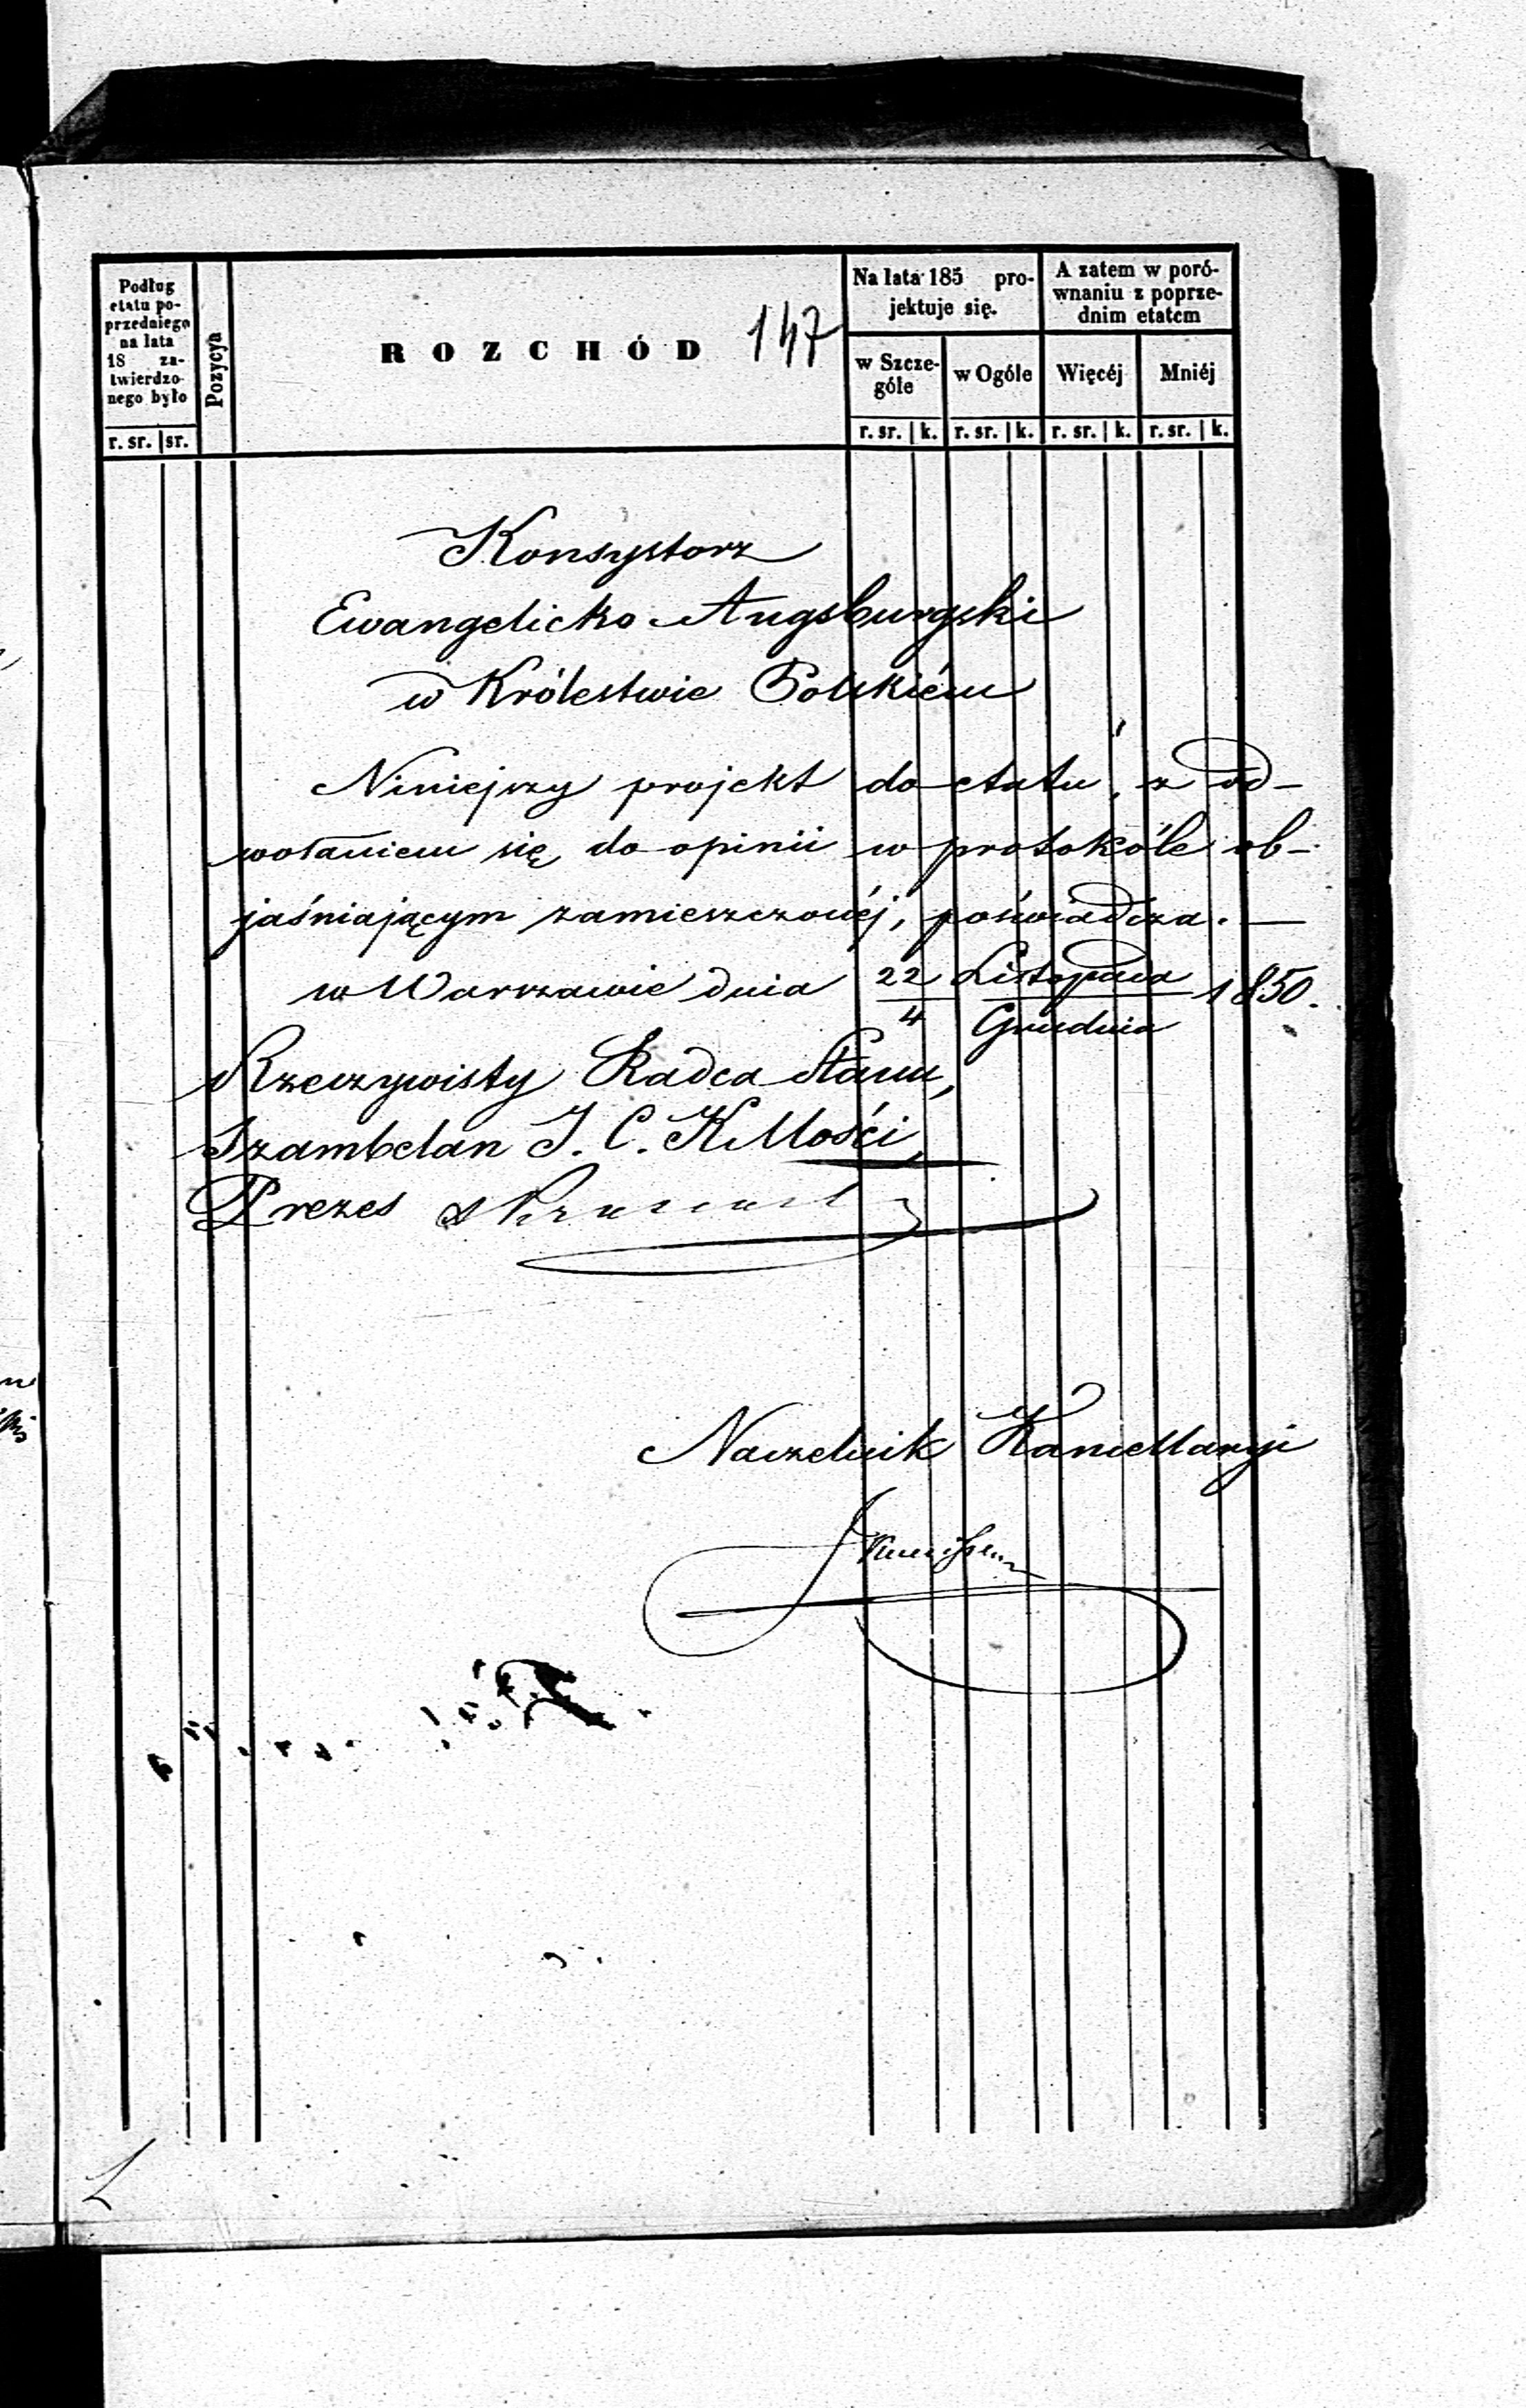 Podług
etatu po-
przedniego
na lata
18 za-
twierdzo-
nego było
r. sr. sr.
Pozycya
ROZCHÓD 147
Na lata 185 pro-
jektuje się.
A zatem w poró-
wnaniu z poprze-
dnim etatem
w Szcze-
góle
w Ogóle
Więcéj
Mniéj
r. sr. k. r. sr. k. r. sr. k. r. sr. k.
Konsystorz
Ewangelicko Augsburgski
w Królestwie Polskiém
Niniejszy projekt do etatu, z od-
wołaniem się do opinii w protokóle ob-
jaśniającym zamieszczonéj, poświadcza. —
w Warszawie dnia 22/4 Listopada/Grudnia 1850.
Rzeczywisty Radca Stanu,
Szambelan J. C. K Mości,
Prezes
Naczelnik Kancellaryi